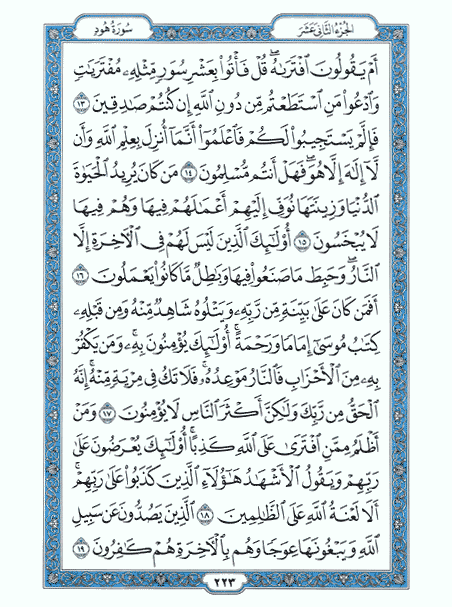 الجزء الثانى عشر
سورة هود
أَمْ يَقُولُونَ ٱفْتَرَىٰهُ ۖ قُلْ فَأْتُوا۟ بِعَشْرِ سُوَرٍ مِّثْلِهِۦ مُفْتَرَيَٰتٍ
وَٱدْعُوا۟ مَنِ ٱسْتَطَعْتُم مِّن دُونِ ٱللَّهِ إِن كُنتُمْ صَٰدِقِينَ ١٣
فَإِلَّمْ يَسْتَجِيبُوا۟ لَكُمْ فَٱعْلَمُوٓا۟ أَنَّمَآ أُنزِلَ بِعِلْمِ ٱللَّهِ وَأَن
لَّآ إِلَٰهَ إِلَّا هُوَ ۖ فَهَلْ أَنتُم مُّسْلِمُونَ ١٤ مَن كَانَ يُرِيدُ ٱلْحَيَوٰةَ
ٱلدُّنْيَا وَزِينَتَهَا نُوَفِّ إِلَيْهِمْ أَعْمَٰلَهُمْ فِيهَا وَهُمْ فِيهَا
لَا يُبْخَسُونَ ١٥ أُو۟لَٰٓئِكَ ٱلَّذِينَ لَيْسَ لَهُمْ فِى ٱلْءَاخِرَةِ إِلَّا
ٱلنَّارُ ۖ وَحَبِطَ مَا صَنَعُوا۟ فِيهَا وَبَٰطِلٌ مَّا كَانُوا۟ يَعْمَلُونَ ١٦
أَفَمَن كَانَ عَلَىٰ بَيِّنَةٍ مِّن رَّبِّهِۦ وَيَتْلُوهُ شَاهِدٌ مِّنْهُ وَمِن قَبْلِهِۦ
كِتَٰبُ مُوسَىٰٓ إِمَامًا وَرَحْمَةً ۚ أُو۟لَٰٓئِكَ يُؤْمِنُونَ بِهِۦ ۚ وَمَن يَكْفُرْ
بِهِۦ مِنَ ٱلْأَحْزَابِ فَٱلنَّارُ مَوْعِدُهُۥ ۚ فَلَا تَكُ فِى مِرْيَةٍ مِّنْهُ ۚ إِنَّهُ
ٱلْحَقُّ مِن رَّبِّكَ وَلَٰكِنَّ أَكْثَرَ ٱلنَّاسِ لَا يُؤْمِنُونَ ١٧ وَمَنْ
أَظْلَمُ مِمَّنِ ٱفْتَرَىٰ عَلَى ٱللَّهِ كَذِبًا ۚ أُو۟لَٰٓئِكَ يُعْرَضُونَ عَلَىٰ
رَبِّهِمْ وَيَقُولُ ٱلْأَشْهَٰدُ هَٰٓؤُلَآءِ ٱلَّذِينَ كَذَبُوا۟ عَلَىٰ رَبِّهِمْ ۚ
أَلَا لَعْنَةُ ٱللَّهِ عَلَى ٱلظَّٰلِمِينَ ١٨ ٱلَّذِينَ يَصُدُّونَ عَن سَبِيلِ
ٱللَّهِ وَيَبْغُونَهَا عِوَجًا وَهُم بِٱلْءَاخِرَةِ هُمْ كَٰفِرُونَ ١٩
٢٢٣